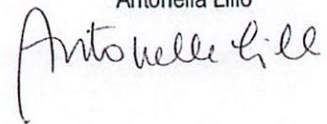 Antonella Lillo
Antonella Lill